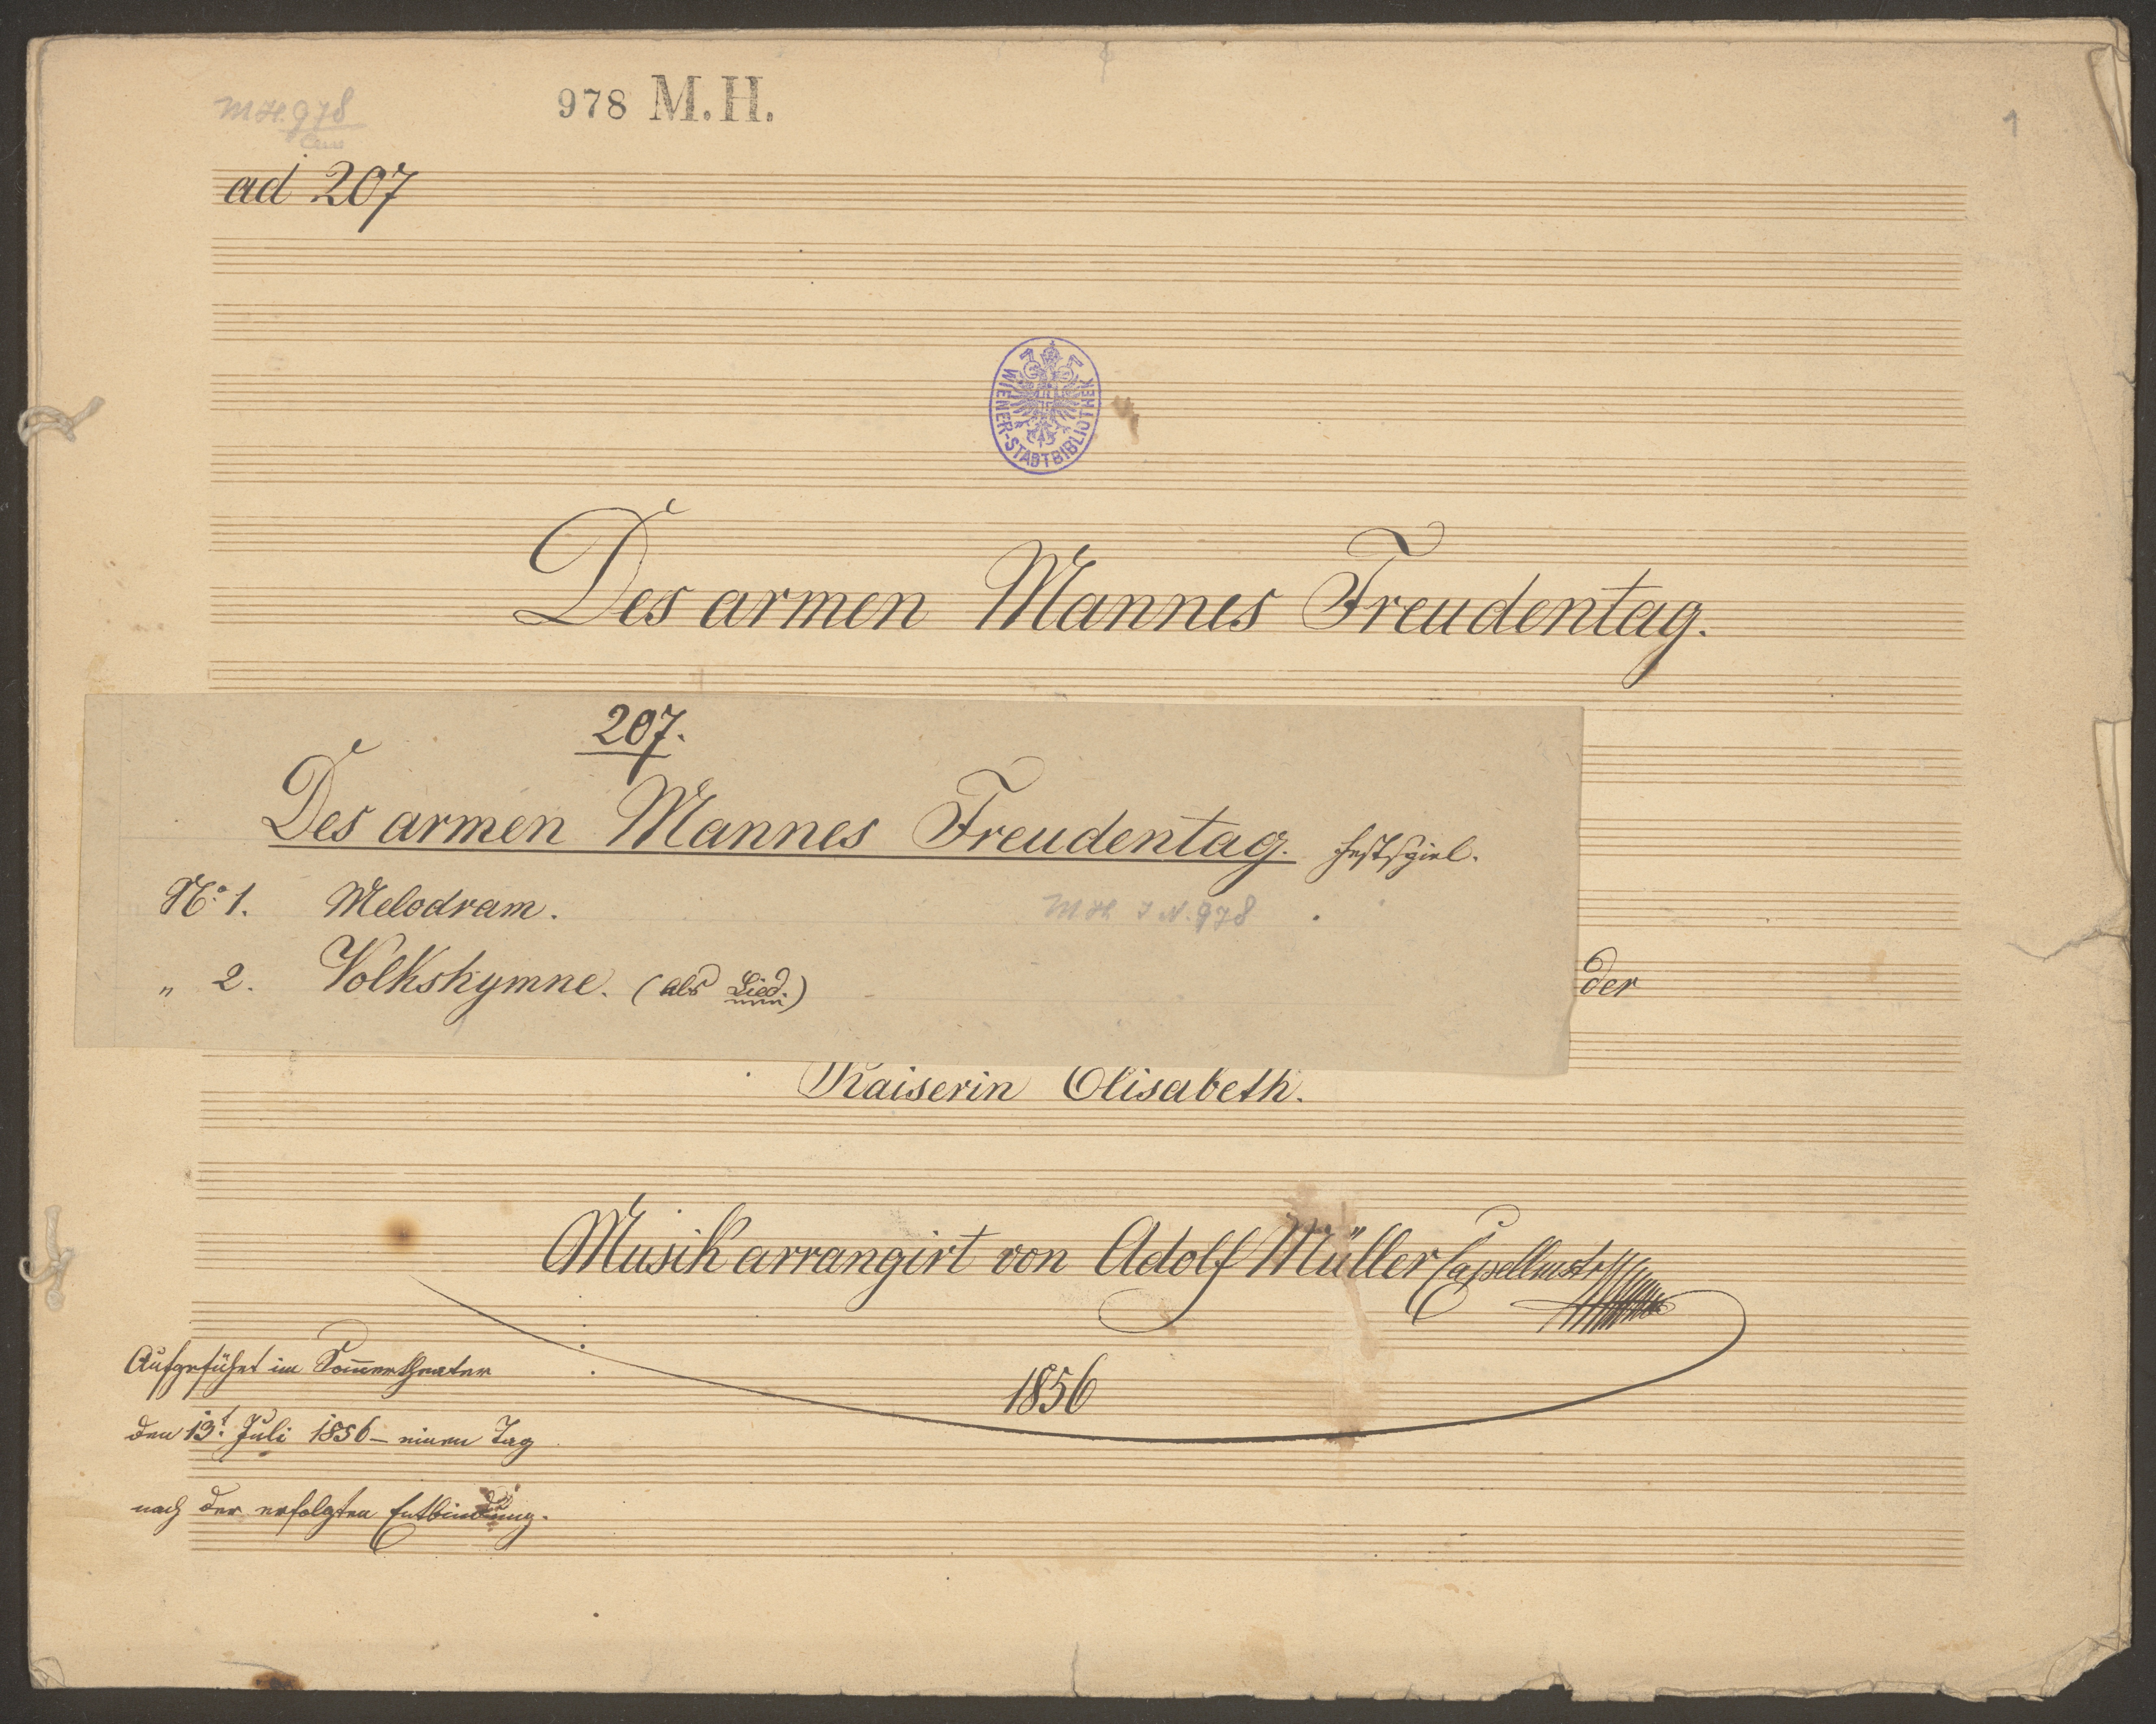 M.H. 978
978 M.H.
1
ad 207
WIENER-STADTBIBLIOTHEK
Des armen Mannes Freudentag.
207.
Des armen Mannes Freudentag. Festspiel.
No. 1. Melodram. M H I N. 978
„ 2. Volkshymne. (als Lied.)
der
Kaiserin Elisabeth.
Musik arrangirt von Adolf Müller Capellmstr
1856
Aufgeführt im Som̅ertheater
den 13t. Juli 1856 – einen Tag
nach der erfolgten Entbindung.